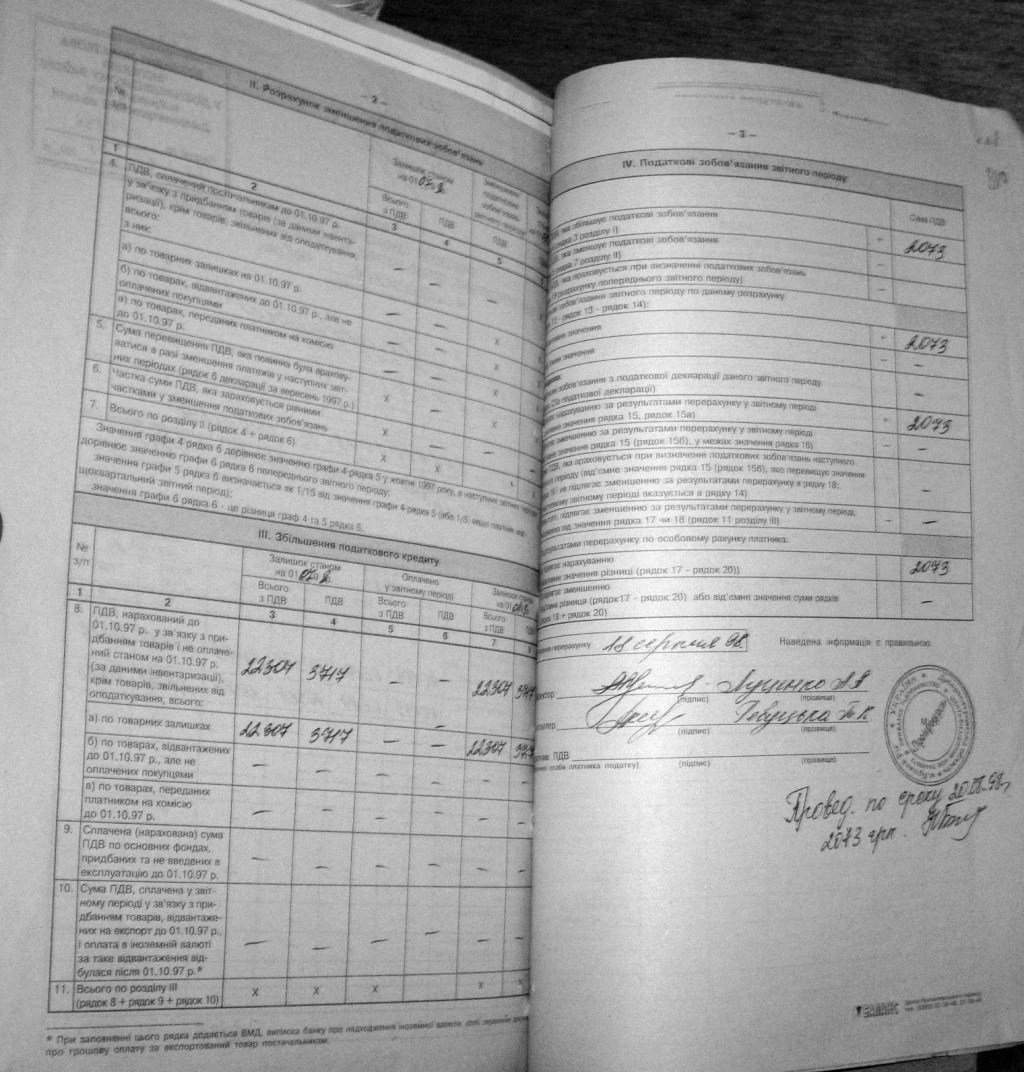 – 2 –
II. Розрахунок зменшення податкових зобов'язань
№
з/п
Залишок станом
на 01.07.98
Всього
з ПДВ
ПДВ
ПДВ
1
2
3
4
5
4.
ПДВ, сплачений постачальникам до 01.10.97 р.
у зв'язку з придбанням товарів (за даними інвента-
ризації), крім товарів, звільнених від оподаткування,
всього:
з них:
—
—
—
а) по товарних залишках на 01.10.97 р.
—
—
—
б) по товарах, відвантажених до 01.10.97 р., але не
оплачених покупцями
—
—
х
в) по товарах, переданих платником на комісію
до 01.10.97 р.
—
—
х
5.
Сума перевищення ПДВ, яка повинна була врахову-
ватися в разі зменшення платежів у наступних звіт-
них періодах (рядок 6 декларації за вересень 1997 р.)
х
—
х
6.
Частка суми ПДВ, яка зараховується рівними
частками у зменшення податкових зобов'язань
х
—
—
7.
Всього по розділу II (рядок 4 + рядок 6)
х
х
Значення графи 4 рядка 6 дорівнює значенню графи 4 рядка 5 у жовтні 1997 року, в наступних звітних
дорівнює значенню графи 6 рядка 6 попереднього звітного періоду;
значення графи 5 рядка 6 визначається як 1/15 від значення графи 4 рядка 5 (або 1/5, якщо платник має
щоквартальний звітний період);
значення графи 6 рядка 6 - це різниця граф 4 та 5 рядка 6.
III. Збільшення податкового кредиту
№
з/п
Залишок станом
на 01.07.98 р.
Оплачено
у звітному періоді
Залишок
на 01.
Всього
з ПДВ
ПДВ
Всього
з ПДВ
ПДВ
Всього
з ПДВ
1
2
3
4
5
6
7
8
8.
ПДВ, нарахований до
01.10.97 р. у зв'язку з при-
дбанням товарів і не оплаче-
ний станом на 01.10.97 р.
(за даними інвентаризації),
крім товарів, звільнених від
оподаткування, всього:
22307
3717
—
—
22307
3717
а) по товарних залишках
22307
3717
—
—
22307
3717
б) по товарах, відвантажених
до 01.10.97 р., але не
оплачених покупцями
—
—
—
—
—
—
в) по товарах, переданих
платником на комісію
до 01.10.97 р.
—
—
—
—
—
9.
Сплачена (нарахована) сума
ПДВ по основних фондах,
придбаних та не введених в
експлуатацію до 01.10.97 р.
—
—
—
—
—
—
10.
Сума ПДВ, сплачена у звіт-
ному періоді у зв'язку з при-
дбанням товарів, відвантаже-
них на експорт до 01.10.97 р.,
і оплата в іноземній валюті
за таке відвантаження від-
булася після 01.10.97 р.*
—
—
—
—
—
—
11.
Всього по розділу III
(рядок 8 + рядок 9 + рядок 10)
х
х
х
х
х
* При заповненні цього рядка додається ВМД, виписка банку про надходження іноземної валюти, копії
про грошову оплату за експортований товар постачальникам.
– 3 –
IV. Податкові зобов'язання звітного періоду
Сума ПДВ
яка збільшує податкові зобов'язання
3 розділу I)
+
2073
яка зменшує податкові зобов'язання
7 розділу II)
–
—
яка враховується при визначенні податкових зобов'язань
розрахунку попереднього звітного періоду)
–
зобов'язання звітного періоду по даному розрахунку
12 - рядок 13 - рядок 14):
значення
+
2073
значення
–
—
зобов'язання з податкової декларації даного звітного періоду
податкової декларації)
—
нарахуванню за результатами перерахунку у звітному періоді
значення рядка 15, рядок 15а)
+
2073
зменшенню за результатами перерахунку у звітному періоді
значення рядка 15 (рядок 15б), у межах значення рядка 16)
–
—
ПДВ, яка враховується при визначенні податкових зобов'язань наступного
періоду (від'ємне значення рядка 15 (рядок 15б), яке перевищує значення
16) і не підлягає зменшенню за результатами перерахунку в рядку 18;
звітному періоді вказується в рядку 14)
—
підлягає зменшенню за результатами перерахунку у звітному періоді,
від значення рядка 17 чи 18 (рядок 11 розділу III)
–
—
результатами перерахунку по особовому рахунку платника:
нарахуванню
значення різниці (рядок 17 - рядок 20))
2073
зменшенню
різниця (рядок17 - рядок 20) або від'ємне значення суми рядків
18 + рядок 20)
—
перерахунку 18 серпня 98.
Наведена інформація є правильною.
Луценко
(підпис)
(прізвище)
Ревуцька Т.К.
(підпис)
(прізвище)
ПДВ
особи платника податку)
(підпис)
(прізвище)
Провед. по сроку 20.08.98г.
2073 грн.
БАЛАНС